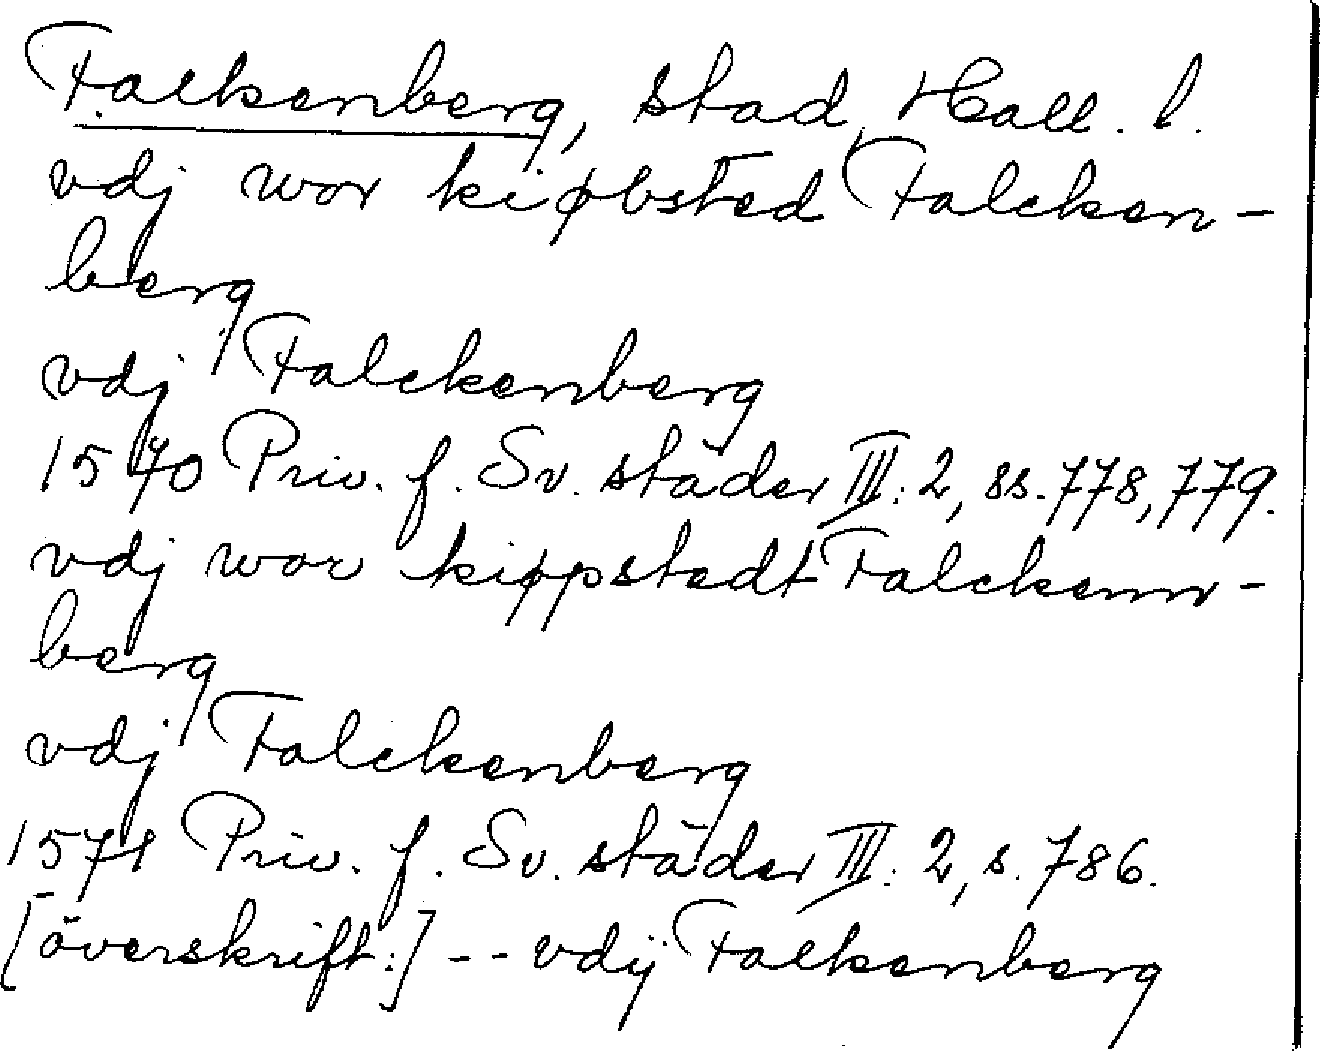 Falkenberg, stad, Hall. l.
vdj wor kiøbsted Falcken-
berg
vdj Falckenberg
1570 Priv. f. Sv. städer III: 2, ss. 778, 779.
vdj wor kippstedt Falckenn-
berg
vdj Falckenberg
1571 Priv. f. Sv. städer III: 2, s. 786.
[överskrift:] -- vdij Falkenberg